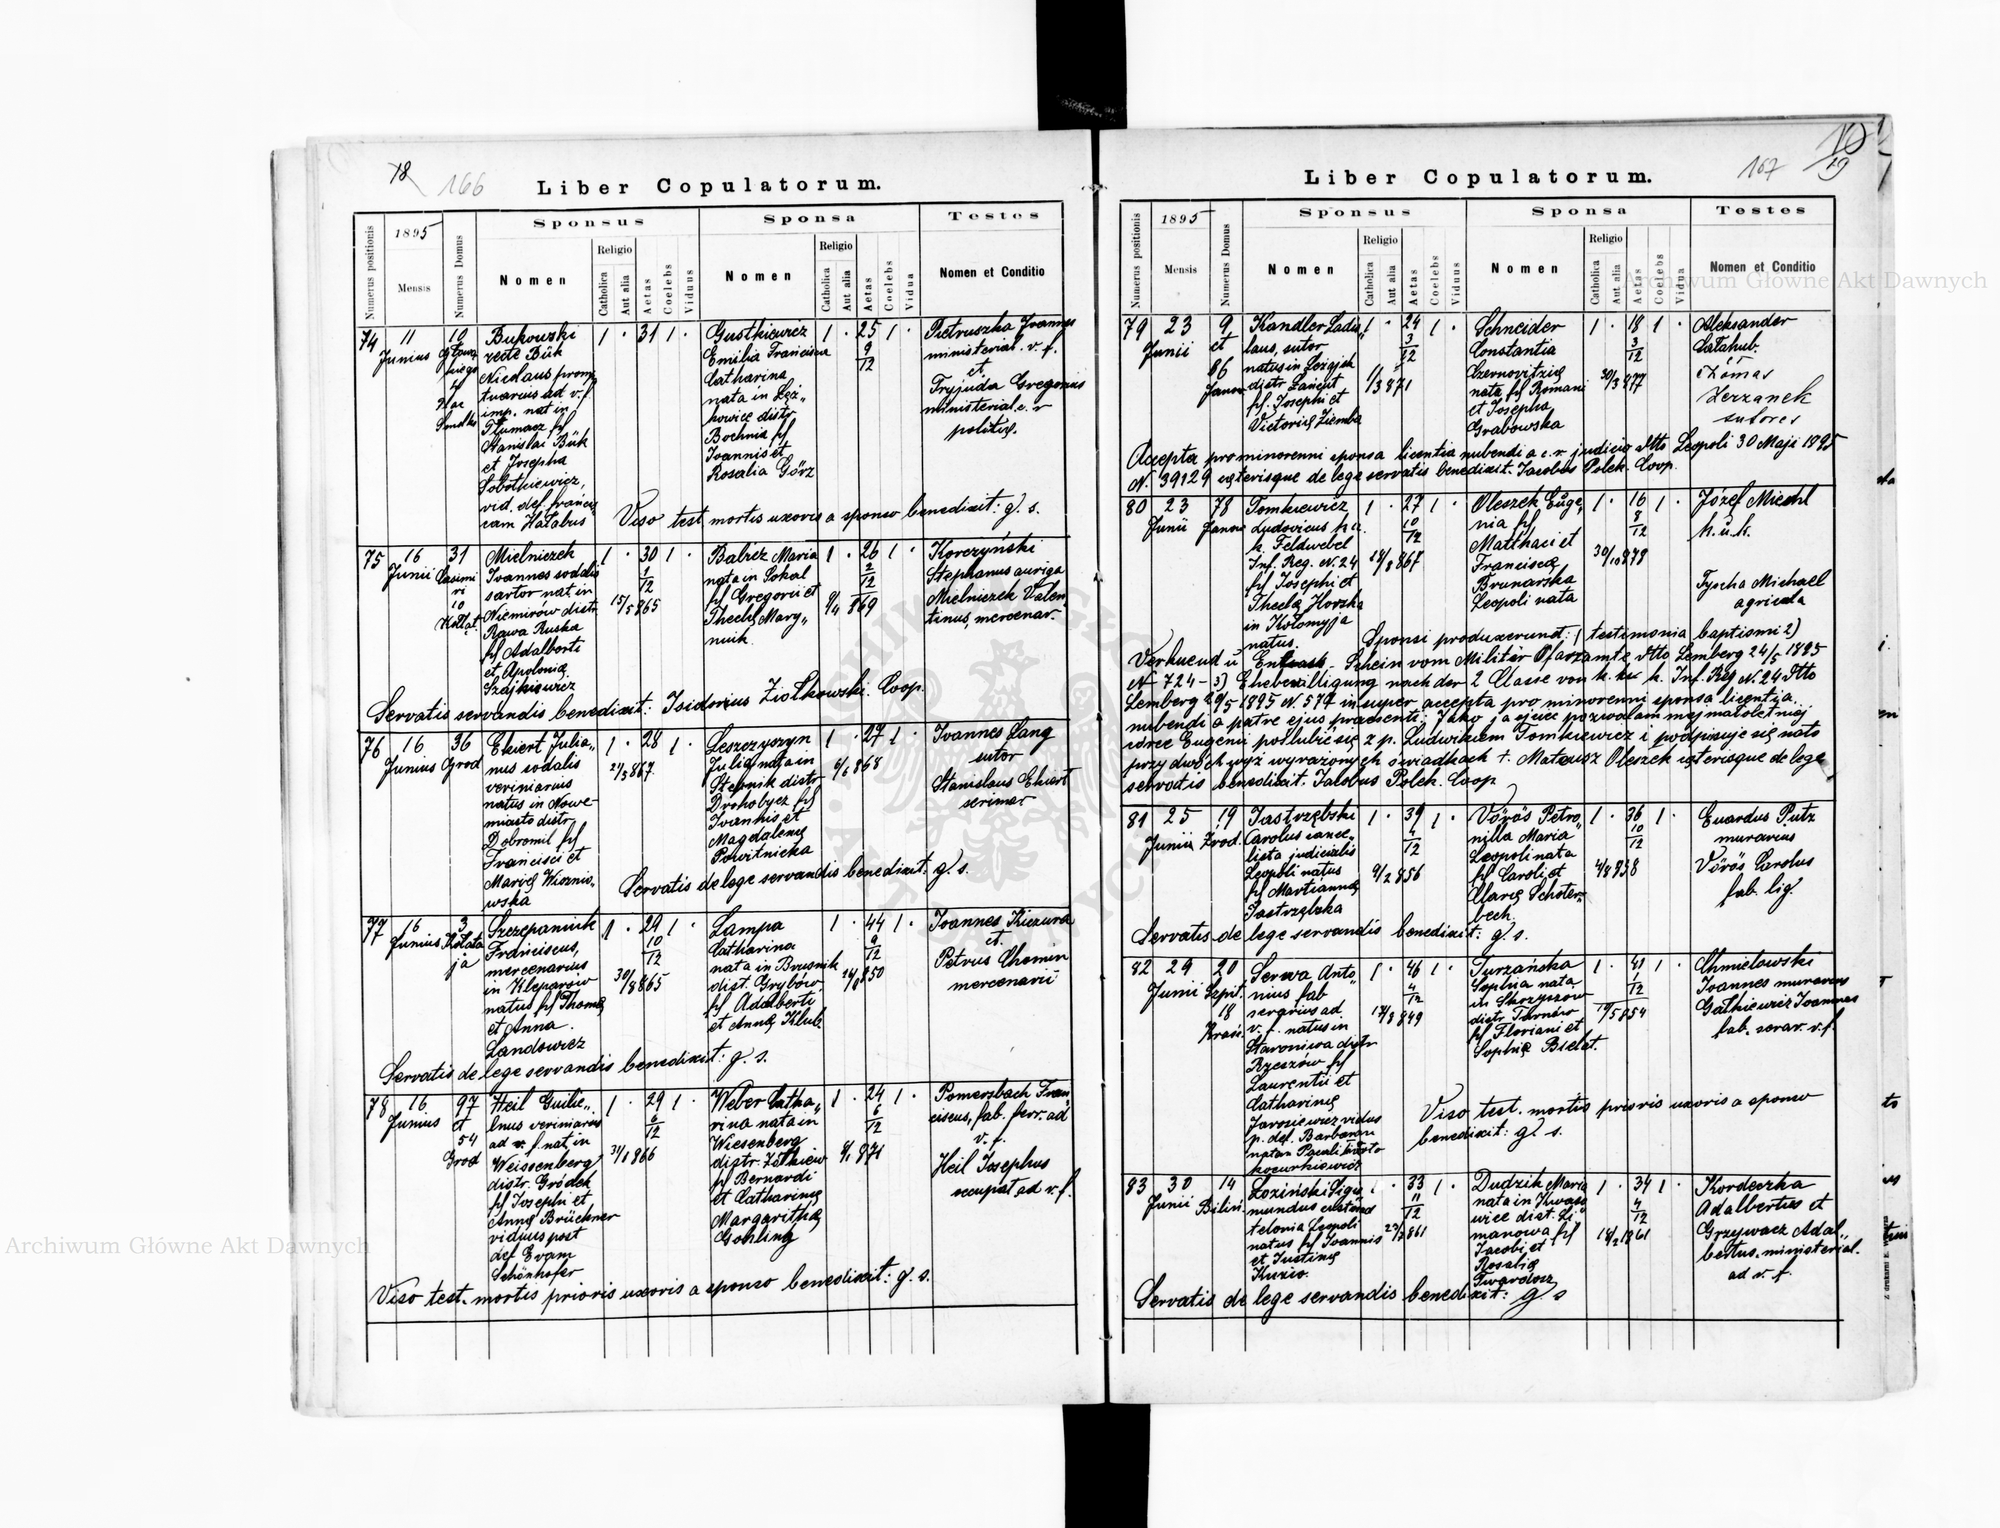 78 166
Liber Copulatorum.
Numerus positionis
1895
Mensis
Numerus Domus
Sponsus
Nomen
Religio
Catholica
Aut alia
Aetas
Coelebs
Viduus
Sponsa
Nomen
Religio
Catholica
Aut alia
Aetas
Coelebs
Vidua
Testes
Nomen et Conditio
74 11 Junius 10
Bukowski
recte Bük
Nicolaus promp
tuarius ad v. f.
imp. nat in
Tłumacz fil
Stanislai Bük
et Josepha
Sobotkiewicz,
vid. def. francis
cam Hałabus
1 . 31 1 .
Gustkiewicz
Emilia Francisca
Catharina
nata in Łęż„
kowice distr
Bochnia fil
Joannis et
Rosalia Görz
1 . 25 9/12 1 .
Pietruszka Joannes
ministerial. v. f.
et
Tryjuda Gregorius
ministerial c. r
politiæ.
Viso test mortis uxoris a sponso benedixit: g. s.
75 16 Junii 31 Casimi
ri
10
Kołłąt.
Mielniczek
Joannes sodalis
sartor nat. in
Niemirów distr
Rawa Ruska
fil Adalberti
et Apolonia
Szajkiewicz
1 . 30 1/12 1 .
15/5 865
Balicz Maria
nata in Sokal
fil Gregorii et
Thecla Mary„
niuk
1 . 26 2/12 1 .
9/4 869
Korczyński
Stephanus auriga
Mielniczek Valen
tinus, mercenar.
Servatis servandis benedixit: Isidorius Ziołkowski Coop.
76 16 Junius 36 Grod
Ekiert Julia„
nus sodalis
verimiarius
natus in Nowe-
miasto distr
Dobromil fil
Francisci et
Mariæ Wiznio„
wska
1 . 28 1 .
21/5 867
Leszczyszyn
Julia nata in
Stebnik distr
Drohobycz fil
Joannis et
Magdalenæ
Powitnicka
1 . 27 1 .
6/6 868
Joannes Lang
sutor
Stanislaus Ekiert
scrimar
Servatis de lege servandis benedixit: g. s.
77 16 Junius 3 Kołłata
ja
Szczepaniuk
Franciscus,
mercenarius
in Kleparow
natus fil Thomæ
et Anna
Landowicz
1 . 29 10/12 1 .
30/8 865
Lampa
Catharina
nata in Brusnik
dist. Grybów
fil Adalberti
et Annæ Klub.
1 . 44 9/12 1 .
Joannes Kiczura
et.
Petrus Chomin
mercenarii
Servatis de lege servandis benedixit: g. s.
78 16. Junius 97
et
54
Grod
Heil Guilie„
lmus verimiarius
ad v. f. nat in
Weissenberg
distr. Gródek
fil Josephi et
Annæ Brückner
viduus post
def Evam
Schönhofer
1 . 29 6/12 1 .
31/1 866
Weber Catha„
rina nata in
Wiesenberg
distr. Żółkiew
fil Bernardi
et Catharinæ
Margarithæ
Gohling
1 . 24 6/12 1 .
9/1 871
Pomerzbach Fran„
ciscus, fab. ferr. ad
v. f.
Heil Josephus
occupat ad v. f.
Viso test. mortis prioris uxoris a sponso benedixit: g. s.
167 19
Liber Copulatorum.
Numerus positionis
1895
Mensis
Numerus Domus
Sponsus
Nomen
Religio
Catholica
Aut alia
Aetas
Coelebs
Viduus
Sponsa
Nomen
Religio
Catholica
Aut alia
Aetas
Coelebs
Vidua
Testes
Nomen et Conditio
79 23 Junii 9
et
16
Janow
Kandler Ladis„
laus, sutor
natus in Leżajsk
distr Łańcut
fil. Josephi et
Victoriæ Ziemba
1 . 24 3/12 1 .
1/3 871
Schneider
Constantia
Czernovitziæ
nata fil Romani
et Josepha
Grabowska
1 . 18 3/12 1 .
30/3 877
Aleksander
Latahub.
Tomas
Zerzanek
sutores
Accepta pro minorenni sponsa licentia nubendi a c. r. judicio dtto Leopoli 30 Maji 1895
N. 39129 cæterisque de lege servatis benedixit. Jacobus Polek. Coop.
80 23 Junii 78 Janow
Tomkiewicz
Ludovicus k. u.
k. Feldwebel
Inf. Reg. N. 24
fil Josephi et
Theclæ Horska
in Kołomyja
natus.
1 . 27 10/12 1 .
18/8 867
Oleszek Euge„
nia fil
Matthaei et
Franciscæ
Brunarska
Leopoli nata
1 . 16 8/12 1 .
30/10 878
Józef Miechl
k. u. k.
Tycha Michael
agricola
Sponsi produxerunt: 1 testimonia baptismi 2)
Verkuend u Entlass - Schein vom Militär Pfarramte dtto Lemberg 24/5 1895
N 724 - 3) Ehebewilligung nach der 2 Classe von k. u. k. Inf. Reg N. 24 dtto
Lemberg 29/5 1895 N. 574 in super accepta pro minorenni sponsa licentia
nubendi a patre ejus praesenti: Jako ja ojciec pozwalam mej małoletniej
córce Eugenii poślubić się z p. Ludwikiem Tomkiewicz i podpisuję się nato
przy dwóch wyż wyrażonych świadkach + Mateusz Oleszek cæterisque de lege
servatis benedixit. Jacobus Polek. Coop
81 25 Junii 19 Zrod.
Jastrzębski
Carolus cance„
lista judicialis
Leopoli natus
fil Martiannæ
Jastrzębska
1 . 39 4/12 1 .
9/2 856
Vörös Petro„
nilla Maria
Leopoli nata
fil Caroli et
Claræ Schoter„
bech.
1 . 36 10/12 1 .
4/8 858
Euardus Putz
murarius
Vörös Carolus
fab. lig.
Servatis de lege servandis benedixit: g. s.
82 29 Junii 20 Szpit.
18
Krasic.
Serwa Anto„
nius fab
serarius ad
v. f. natus in
Staroniwa distr
Rzeszów fil
Laurentii et
Catharinæ
Jarosiewicz vidus
p. def. Barbaram
natam
1 . 46 4/12 1 .
17/8 849
Turzańska
Sophia nata
in Skrzyszow
distr Tarnów
fil Floriani et
Sophiæ Bielat.
1 . 41 1/12 1 .
19/5 854
Chmielowski
Joannes murarius
Gatkiewicz Joannes
fab. serar. v. f.
Viso test. mortis prioris uxoris a sponso
benedixit: g. s.
83 30 Junii 14 Biliń.
Łoziński Sigis
mundus custos ad
telonia Leopoli
natus fil Joannis
et Justinæ
Kuzio.
1 . 33 11/12 1 .
23/7 861
Dudzik Maria
nata in Kwaso
wice dist. Li
manowa fil
Jacobi et
Rosaliæ
Twardosz
1 . 34 4/12 1 .
18/2 1861
Kordeczka
Adalbertus et
Grzywacz Adal„
bertus, ministerial.
ad v. f.
Servatis de lege servandis benedixit: g. s
Archiwum Główne Akt Dawnych
Archiwum Główne Akt Dawnych